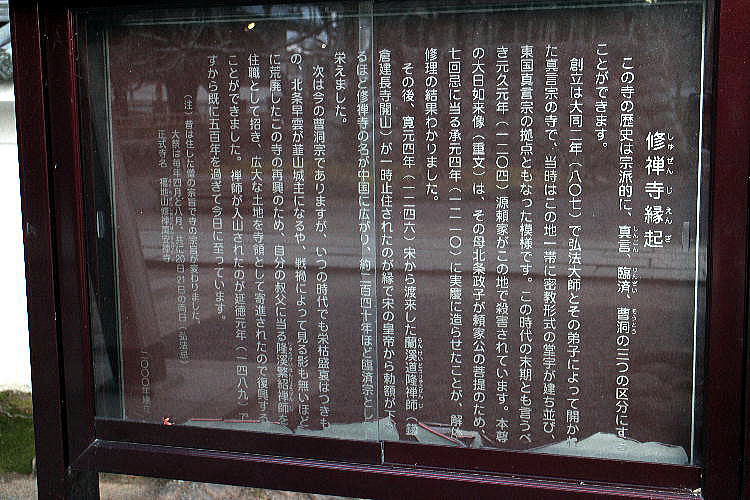 修禅寺縁起
しゅぜん じ えん ぎ
この寺の歴史は宗派的に、真言、臨済、曹洞の三つの区分にす
しんごん りんざい そうとう
ことができます。
創立は大同二年（八〇七）で弘法大師とその弟子によって開かれ
た真言宗の寺で、当時はこの地一帯に密教形式の堂宇が建ち並び、
東国真言宗の拠点ともなった模様です。この時代の末期とも言うべ
き元久元年（一二〇四）源頼家がこの地で殺害されています。本尊
の大日如来像（重文）は、その母北条政子が頼家公の菩提のため、
七回忌に当る承元四年（一二一〇）に実慶に造らせたことが、解体
修理の結果わかりました。
その後、寛元四年（一二四六）宋から渡来した蘭溪道隆禅師（鎌
倉建長寺開山）が一時止住されたのが縁で宋の皇帝から勅額が下
るほど修禅寺の名が中国に広がり、約二百四十年ほど臨済宗として
栄えました。
次は今の曹洞宗でありますが、いつの時代でも栄枯盛衰はつきも
の、北条早雲が韮山城主になるや、戦禍によって見る影も無いほど
に荒廃したこの寺の再興のため、自分の叔父に当る隆溪繁紹禅師を
住職として招き、広大な土地を寺領として寄進されたので復興する
ことができました。禅師が入山されたのが延徳元年（一四八九）で
すから既に五百年を過ぎて今日に至っています。
（注）昔は住した僧の宗旨で寺の宗旨が変わりました。
大祭は毎年四月と八月、共に20日・21日の両日（弘法忌）
正式寺名 福地山修禅萬安禅寺
二〇〇〇年